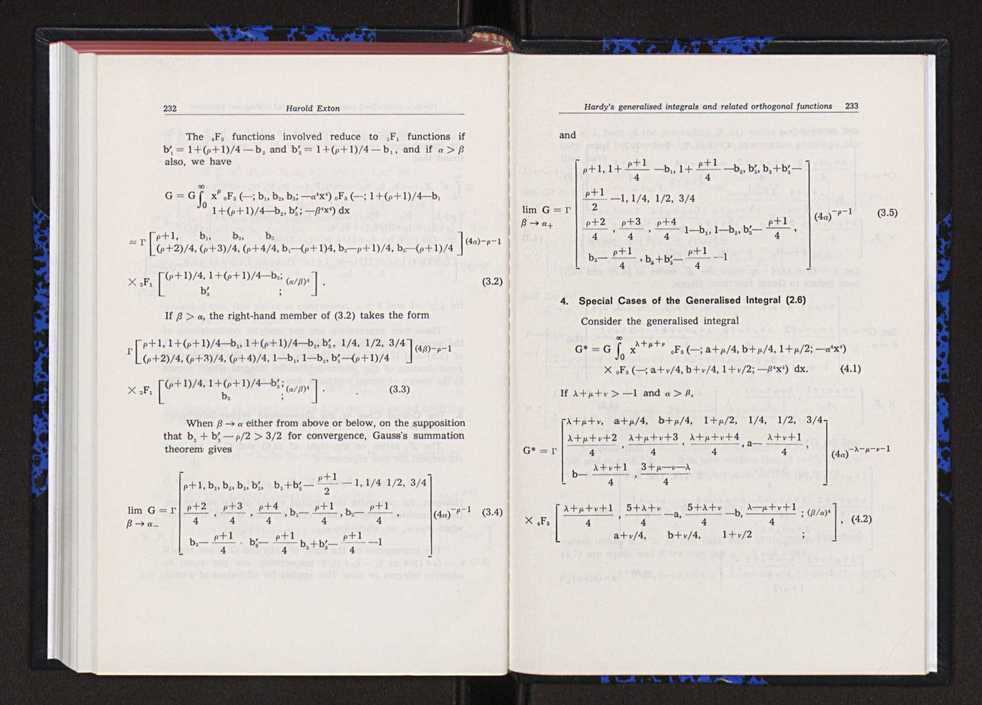 232 Harold Exton
The ₀F₃ functions involved reduce to ₀F₁ functions if
b′₁ = 1+(ρ+1)/4 — b₂ and b′₂ = 1+(ρ+1)/4 — b₁, and if α > β
also, we have
G = G ∫₀^∞ x^ρ ₀F₃ (—; b₁, b₂, b₃; —α⁴x⁴) ₀F₃ (—; 1+(ρ+1)/4—b₁
1+(ρ+1)/4—b₂, b′₃; —β⁴x⁴) dx
= Γ [ρ+1, b₁, b₂, b₃
(ρ+2)/4, (ρ+3)/4, (ρ+4/4, b₁—(ρ+1)4, b₂—ρ+1)/4, b₃—(ρ+1)/4] (4α)^{-ρ-1}
× ₂F₁ [(ρ+1)/4, 1+(ρ+1)/4—b₃; (α/β)⁴
b′₃ ;] . (3.2)
If β > α, the right-hand member of (3.2) takes the form
Γ [ρ+1, 1+(ρ+1)/4—b₁, 1+(ρ+1)/4—b₂, b′₃, 1/4, 1/2, 3/4
(ρ+2)/4, (ρ+3)/4, (ρ+4)/4, 1—b₁, 1—b₂, b′₃—(ρ+1)/4] (4β)^{-ρ-1}
× ₂F₁ [(ρ+1)/4, 1+(ρ+1)/4—b′₃; (α/β)⁴
b₃ ;] . (3.3)
When β → α either from above or below, on the supposition
that b₃ + b′₃ — ρ/2 > 3/2 for convergence, Gauss's summation
theorem gives
lim G = Γ [ρ+1, b₁, b₂, b₃, b′₃, b₃+b′₃— (ρ+1)/2 — 1, 1/4 1/2, 3/4
β → α₋ (ρ+2)/4 , (ρ+3)/4 , (ρ+4)/4 , b₁— (ρ+1)/4 , b₂— (ρ+1)/4 ,
b₃— (ρ+1)/4 . b′₃— (ρ+1)/4 b₃+b′₃— (ρ+1)/4 —1] (4α)^{-ρ-1} (3.4)
Hardy's generalised integrals and related orthogonal functions 233
and
[ρ+1, 1+ (ρ+1)/4 —b₁, 1+ (ρ+1)/4 —b₂, b′₃, b₃+b′₃—
(ρ+1)/2 —1, 1/4, 1/2, 3/4
lim G = Γ
β → α₊ (ρ+2)/4 , (ρ+3)/4 , (ρ+4)/4 1—b₁, 1—b₂, b′₃— (ρ+1)/4 ,
b₃— (ρ+1)/4 , b₃+b′₃— (ρ+1)/4 —1] (4α)^{-ρ-1} (3.5)
4. Special Cases of the Generalised Integral (2.6)
Consider the generalised integral
G* = G ∫₀^∞ x^{λ+μ+ν} ₀F₃ (—; a+μ/4, b+μ/4, 1+μ/2; —α⁴x⁴)
× ₀F₃ (—; a+ν/4, b+ν/4, 1+ν/2; —β⁴x⁴) dx. (4.1)
If λ+μ+ν > —1 and α > β,
G* = Γ [λ+μ+ν, a+μ/4, b+μ/4, 1+μ/2, 1/4, 1/2, 3/4
(λ+μ+ν+2)/4 , (λ+μ+ν+3)/4 , (λ+μ+ν+4)/4 , a— (λ+ν+1)/4 ,
b— (λ+ν+1)/4 , (3+μ—ν—λ)/4] (4α)^{-λ-μ-ν-1}
× ₄F₃ [(λ+μ+ν+1)/4 , (5+λ+ν)/4 —a, (5+λ+ν)/4 —b, (λ—μ+ν+1)/4 ; (β/α)⁴
a+ν/4, b+ν/4, 1+ν/2 ;] . (4.2)